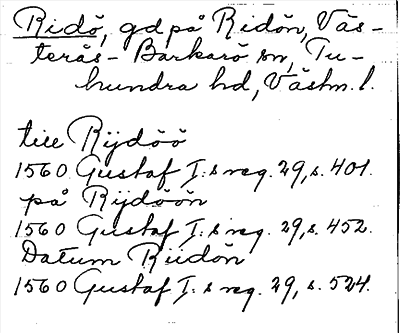 Ridö, gd på Ridön, Väs-
terås-Barkarö sn, Tu-
hundra hd, Västm. l.
till Rijdöö
1560 Gustaf I:s reg. 29, s. 401.
på Rijdöön
1560 Gustaf I:s reg. 29, s. 452.
Datum Riidön
1560 Gustaf I:s reg. 29, s. 524.